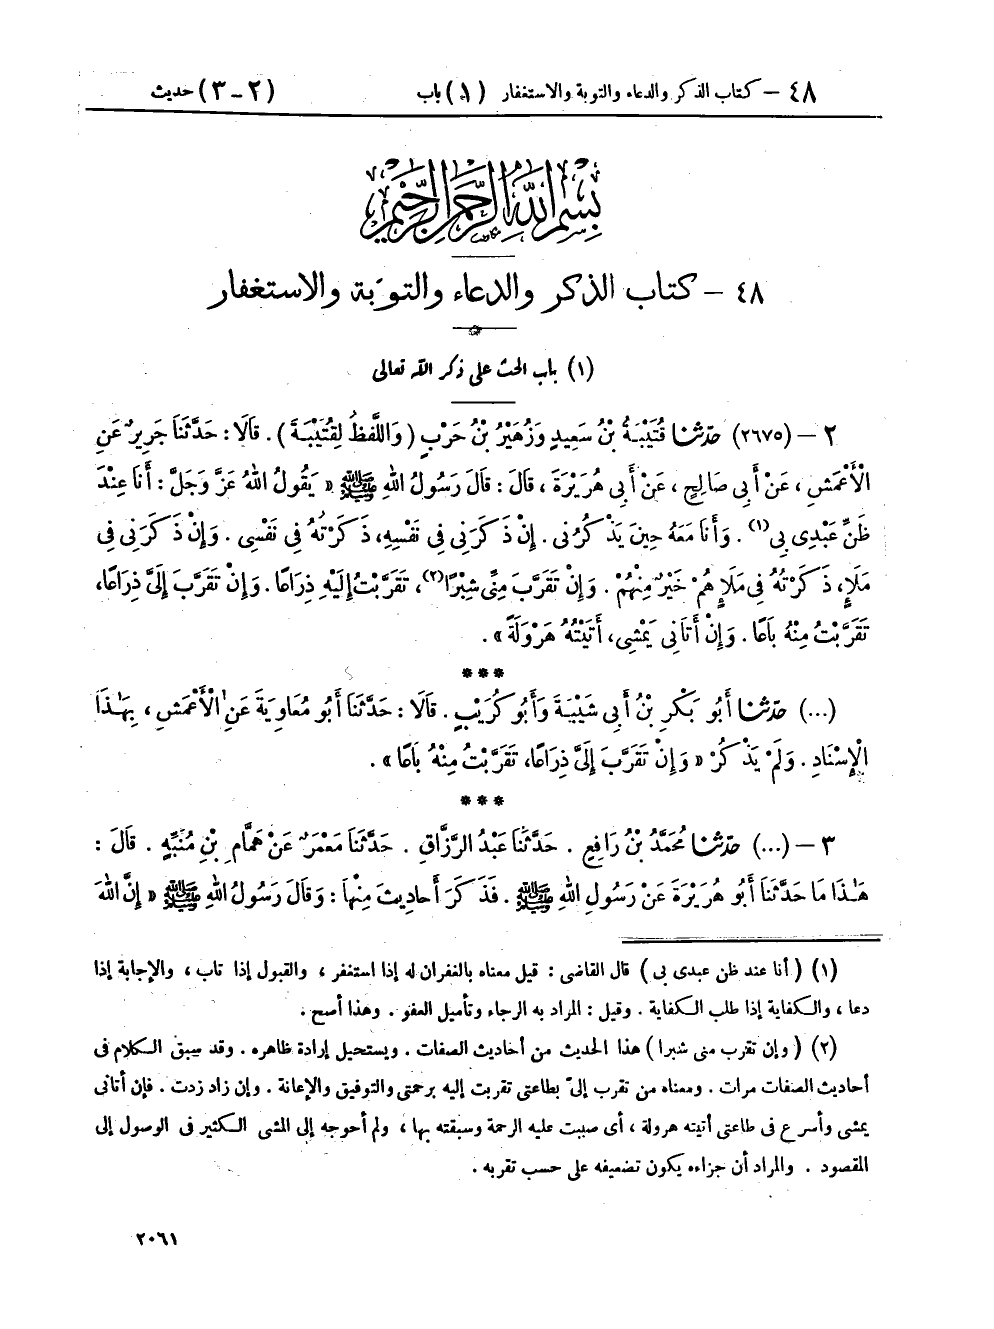 ٤٨ – كتاب الذكر والدعاء والتوبة والاستغفار (١) باب (٢ – ٣) حديث
بسم الله الرحمن الرحيم
٤٨ – كتاب الذكر والدعاء والتوبة والاستغفار
(١) باب الحث على ذكر الله تعالى
٢ – (٢٦٧٥) حدّثنا قُتَيْبَةُ بْنُ سَعِيدٍ وَزُهَيْرُ بْنُ حَرْبٍ (وَاللَّفْظُ لِقُتَيْبَةَ). قَالَا: حَدَّثَنَا جَرِيرٌ عَنِ
الْأَعْمَشِ، عَنْ أَبِي صَالِحٍ، عَنْ أَبِي هُرَيْرَةَ، قَالَ: قَالَ رَسُولُ اللهِ ﷺ «يَقُولُ اللهُ عَزَّ وَجَلَّ: أَنَا عِنْدَ
ظَنِّ عَبْدِى بِي(١). وَأَنَا مَعَهُ حِينَ يَذْكُرُنِى. إِنْ ذَكَرَنِى فِى نَفْسِهِ، ذَكَرْتُهُ فِى نَفْسِى. وَإِنْ ذَكَرَنِى فِى
مَلَإٍ، ذَكَرْتُهُ فِى مَلَإٍ هُمْ خَيْرٌ مِنْهُمْ. وَإِنْ تَقَرَّبَ مِنِّى شِبْرًا(٢)، تَقَرَّبْتُ إِلَيْهِ ذِرَاعًا. وَإِنْ تَقَرَّبَ إِلَىَّ ذِرَاعًا،
تَقَرَّبْتُ مِنْهُ بَاعًا. وَإِنْ أَتَانِى يَمْشِى، أَتَيْتُهُ هَرْوَلَةً».
***
(...) حدّثنا أَبُو بَكْرِ بْنُ أَبِي شَيْبَةَ وَأَبُو كُرَيْبٍ. قَالَا: حَدَّثَنَا أَبُو مُعَاوِيَةَ عَنِ الْأَعْمَشِ، بِهَٰذَا
الْإِسْنَادِ. وَلَمْ يَذْكُرْ «وَإِنْ تَقَرَّبَ إِلَىَّ ذِرَاعًا، تَقَرَّبْتُ مِنْهُ بَاعًا».
***
٣ – (...) حدّثنا مُحَمَّدُ بْنُ رَافِعٍ. حَدَّثَنَا عَبْدُ الرَّزَّاقِ. حَدَّثَنَا مَعْمَرٌ عَنْ هَمَّامِ بْنِ مُنَبِّهٍ. قَالَ:
هَٰذَا مَا حَدَّثَنَا أَبُو هُرَيْرَةَ عَنْ رَسُولِ اللهِ ﷺ. فَذَكَرَ أَحَادِيثَ مِنْهَا: وَقَالَ رَسُولُ اللهِ ﷺ «إِنَّ اللهَ
(١) (أنا عند ظن عبدى بى) قال القاضى: قيل معناه بالغفران له إذا استغفر، والقبول إذا تاب، والإجابة إذا
دعا، والكفاية إذا طلب الكفاية. وقيل: المراد به الرجاء وتأميل العفو. وهذا أصح.
(٢) (وإن تقرب منى شبرا) هذا الحديث من أحاديث الصفات. ويستحيل إرادة ظاهره. وقد سبق الكلام فى
أحاديث الصفات مرات. ومعناه من تقرب إلىّ بطاعتى تقربت إليه برحمتى والتوفيق والإعانة. وإن زاد زدت. فإن أتانى
يمشى وأسرع فى طاعتى أتيته هرولة، أى صببت عليه الرحمة وسبقته بها، ولم أحوجه إلى المشى الكثير فى الوصول إلى
المقصود. والمراد أن جزاءه يكون تضعيفه على حسب تقربه.
٢٠٦١